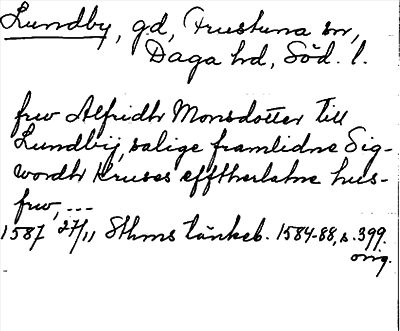 Lundby, gd, Frustuna sn,
Daga hd, Söd. l.
frw Alfridh Monsdotter till
Lundbij, salige framlidne Sig-
wordh Kruses efftherlatne hus-
frw, ---
1587 27/11 Sthms tänkeb. 1584-88, s. 399.
orig.